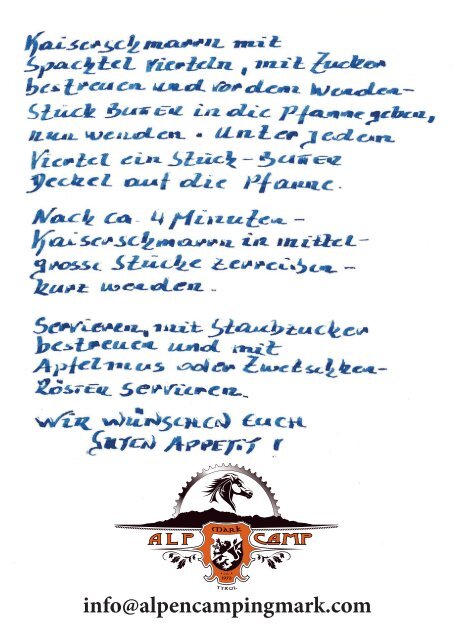 Kaiserschmarrn mit
Spachtel vierteln, mit Zucker
bestreuen und vor dem Wenden-
Stück Butter in die Pfanne geben,
nun wenden. Unter jedem
Viertel ein Stück-Butter
Deckel auf die Pfanne.
Nach ca. 4 Minuten-
Kaiserschmarrn in mittel-
grosse Stücke zerreißen-
kurz wenden.
Servieren, mit Staubzucker
bestreuen und mit
Apfelmus oder Zwetschken-
Röster servieren.
Wir wünschen Euch
Guten Appetit!
MARK
ALP CAMP
1970
TYROL
info@alpencampingmark.com